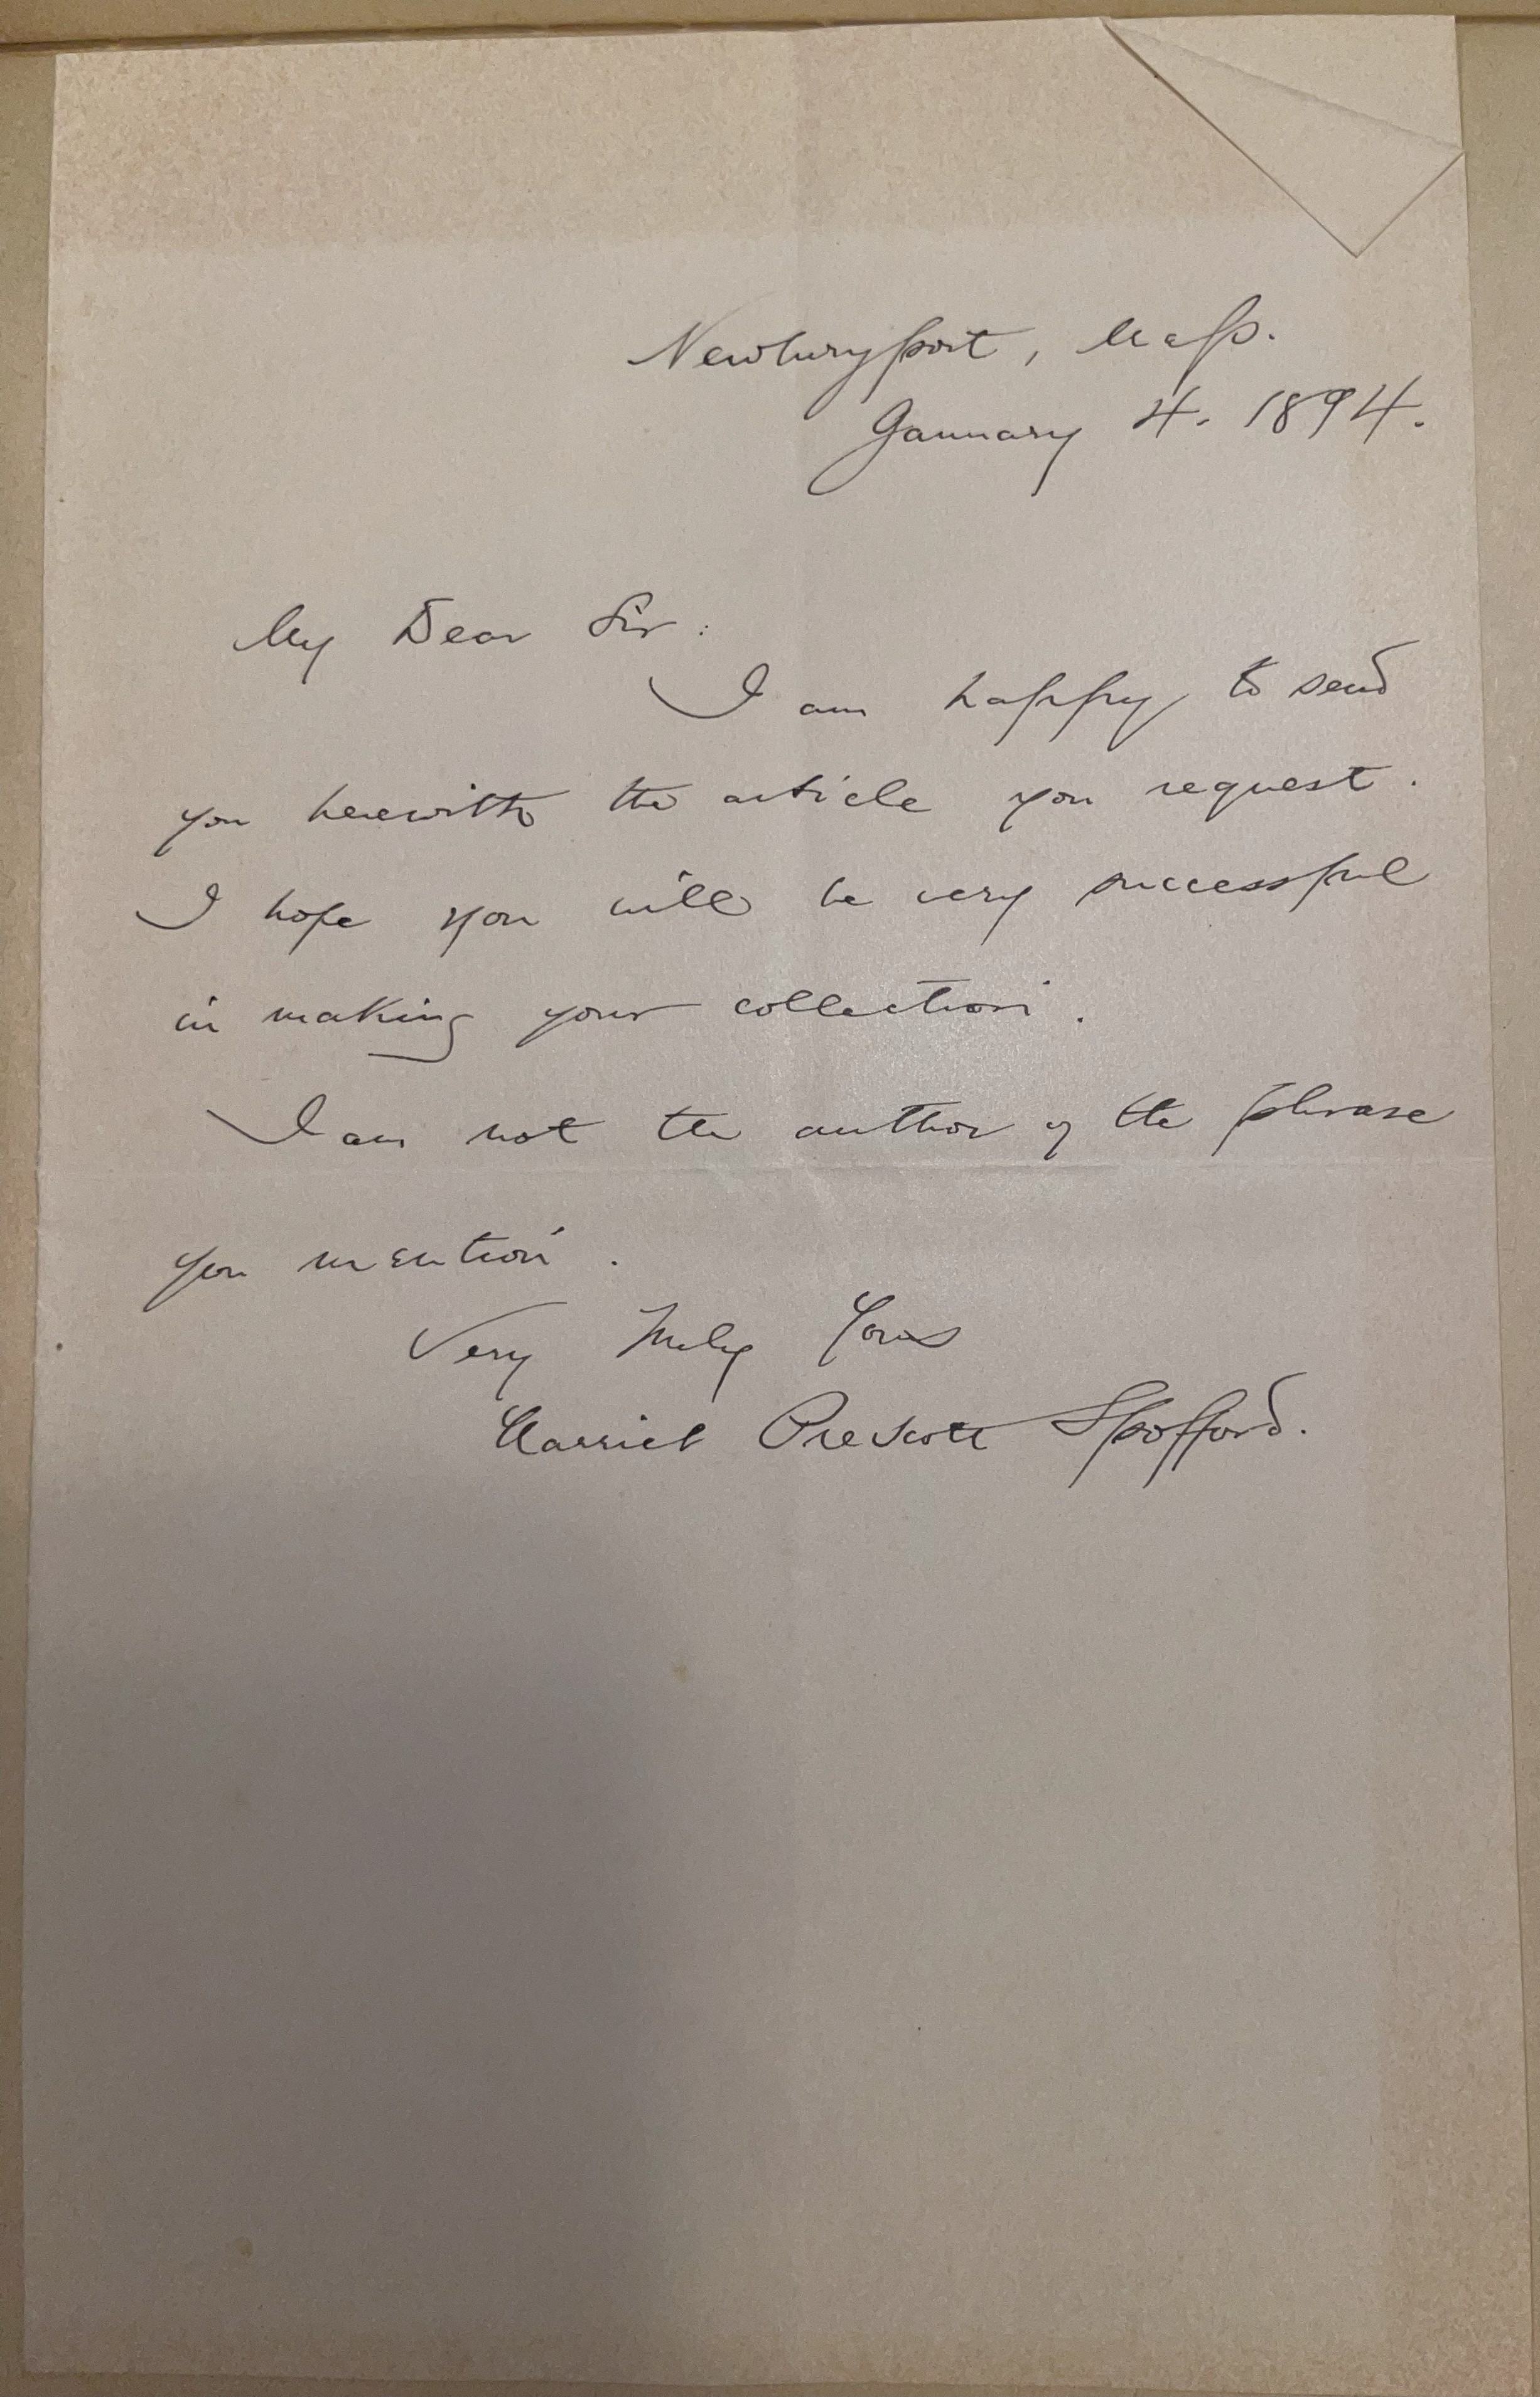 Newburyport, Mass.
January 4. 1894.
My Dear Sir:
I am happy to send
you herewith the article you request.
I hope you will be very successful
in making your collection.
I am not the author of the phrase
you mention.
Very Truly Yours
Harriet Prescott Spofford.